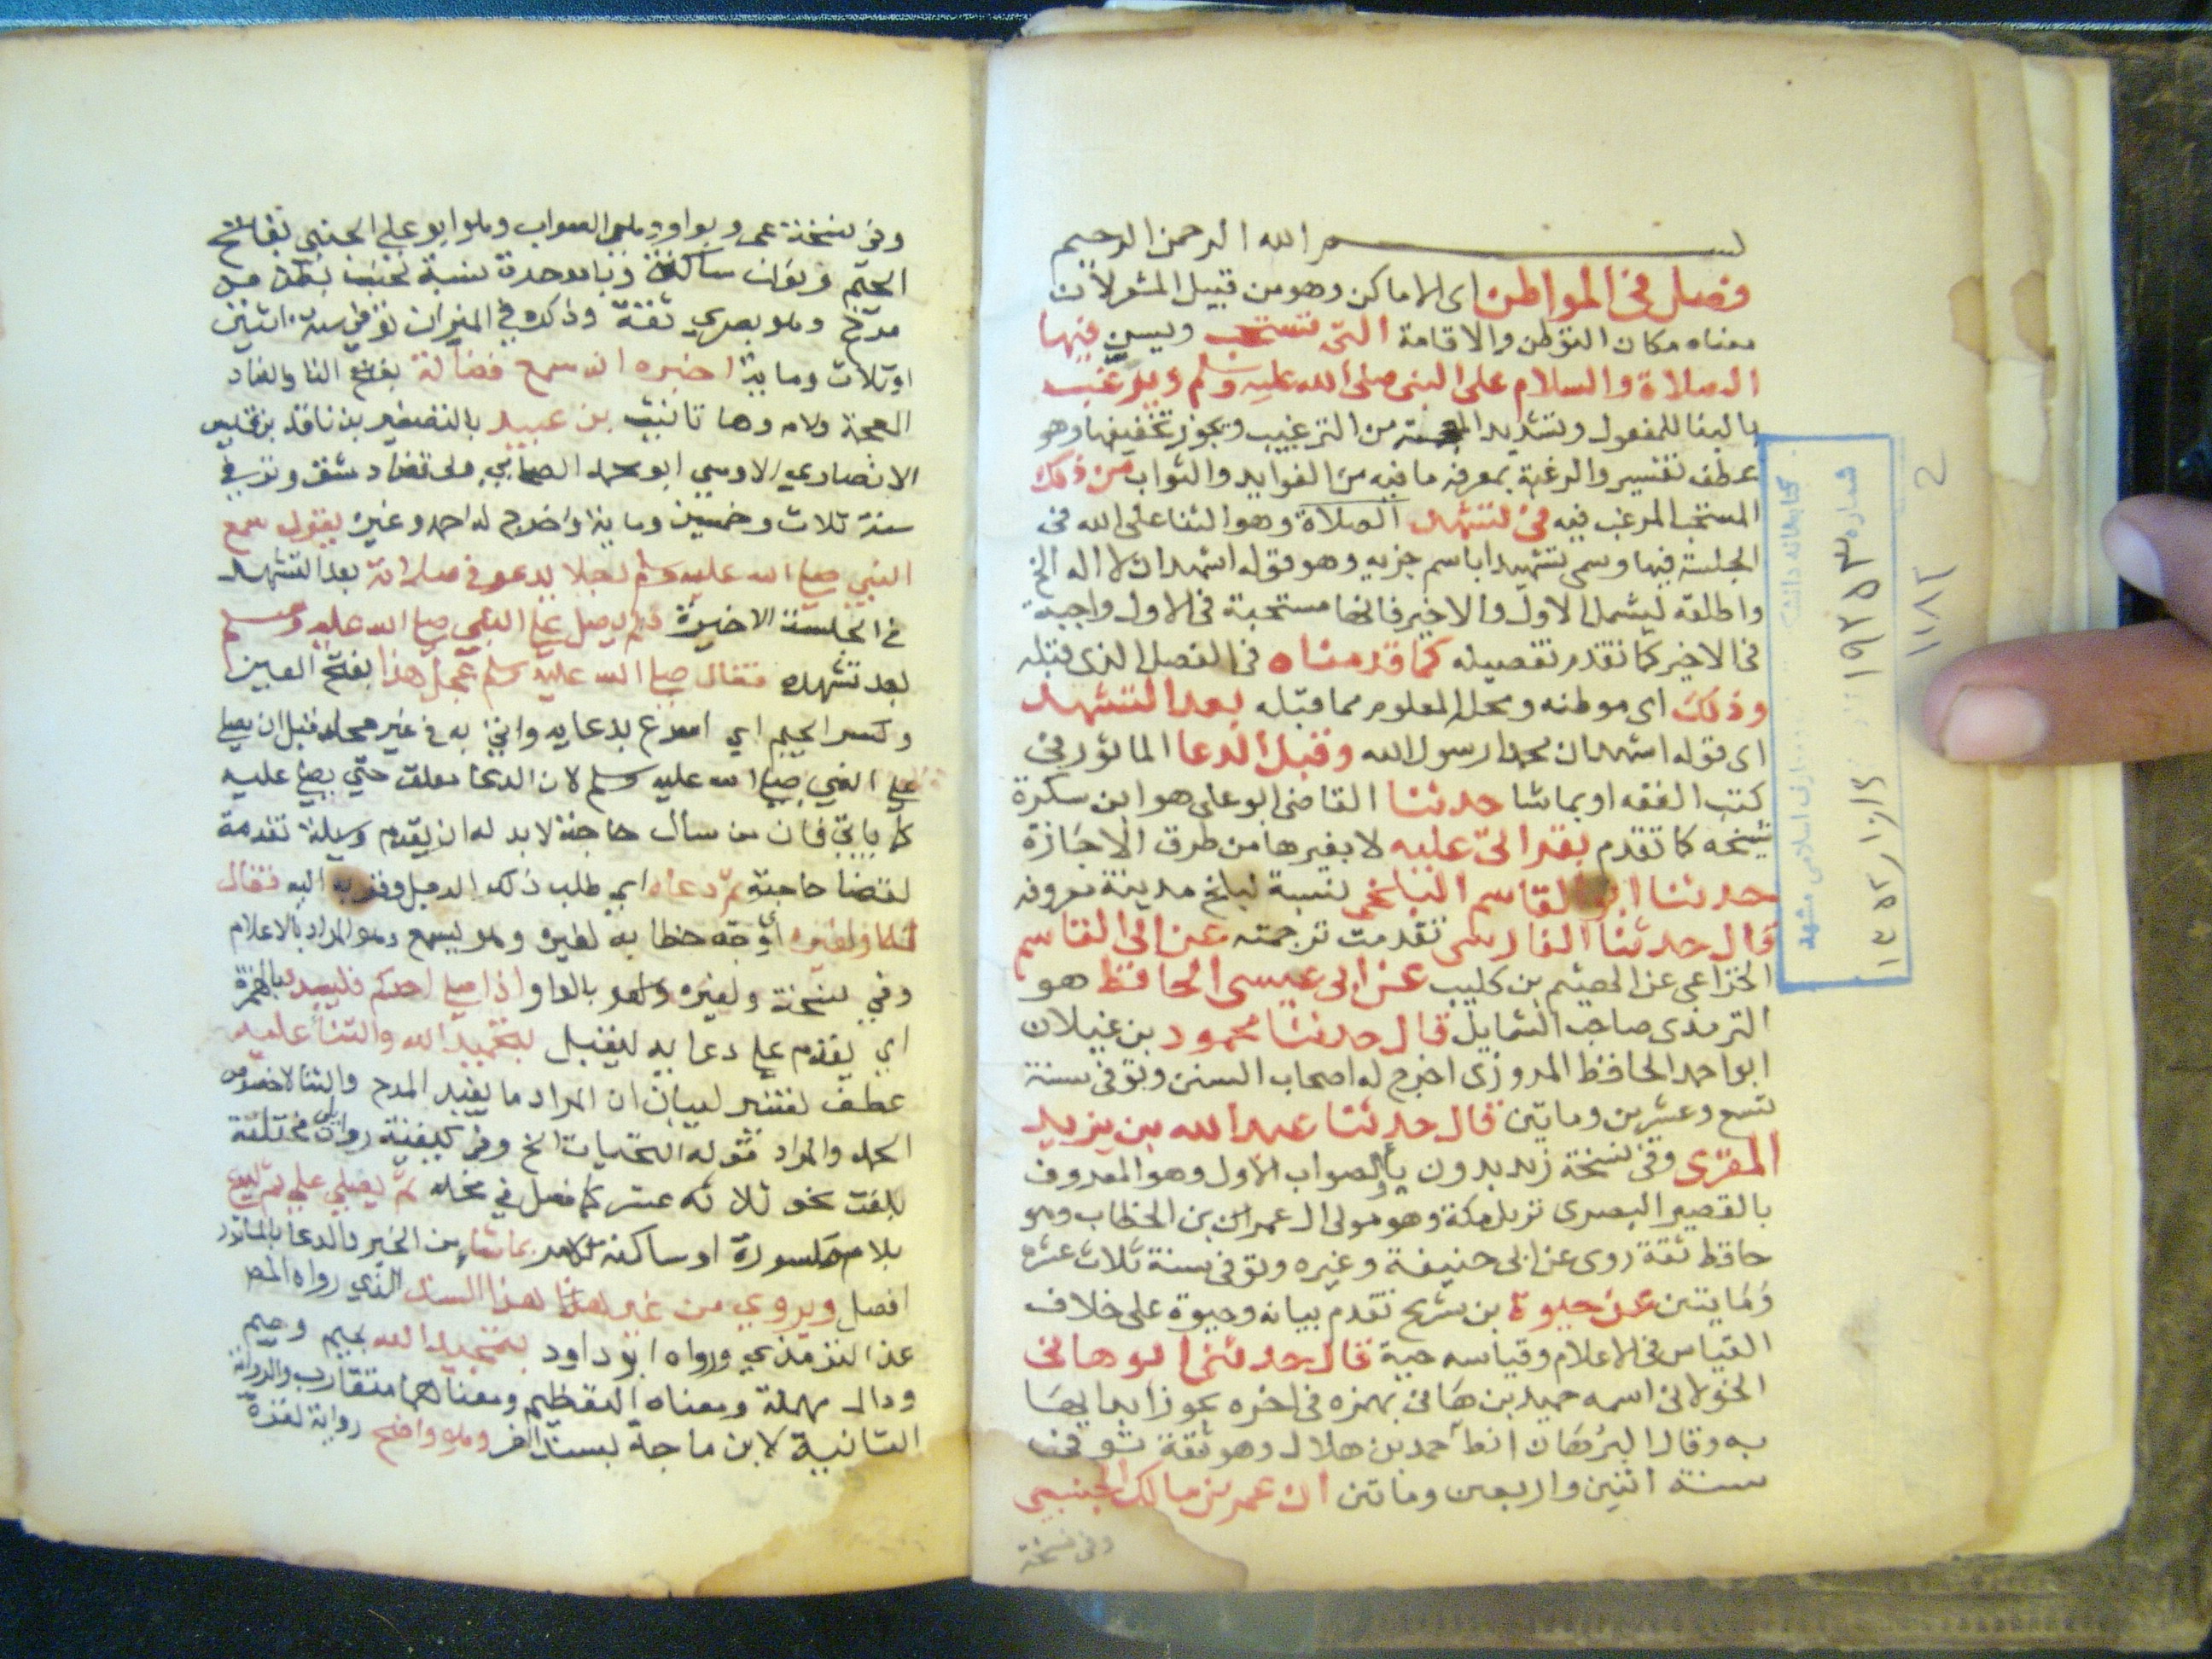 بسم الله الرحمن الرحيم
فصل في المواطن اى الاماكن وهو من قبيل المشولات
معناه مكان التوطن والاقامة التى تستحب ويسن فيها
الصلاة والسلام على النبى صلى الله عليه وسلم ويرغب
بالبنا للمفعول وتشديد المعجمة من الترغيب ويجوز تخفيفها وهو
عطف تفسير والرغبة بمعرفة ما فيه من الفوايد والثواب من ذلك
المستحب المرغب فيه فى تشهد الصلاة وهو الثنا على الله فى
الجلسة فيها وسمى تشهدا باسم جزيه وهو قوله اشهد ان لا اله الخ
واطلقه ليشمل الاول والاخير فانها مستحبة فى الاول واجبة
فى الاخير كما تقدم تفصيله كما قدمناه فى الفصل الذى قبله
وذلك اى موطنه ومحله المعلوم مما قبله بعد التشهد
اى قوله اشهد ان محمدا رسول الله وقبل الدعا الماثور فى
كتب الفقه او بما شا حدثنا القاضى ابو على هو ابن سكرة
شيخه كما تقدم بقراتى عليه لا بغيرها من طرق الاجازة
حدثنا ابو القاسم البلخى نسبة لبلخ مدينة معروفة
قال حدثنا الفارسى تقدمت ترجمته عن ابى القاسم
الخزاعى عن الهيثم بن كليب عن ابى عيسى الحافظ هو
الترمذى صاحب الشمايل قال حدثنا محمود بن غيلان
ابو احمد الحافظ المروزى اخرج له اصحاب السنن وتوفى سنة
تسع وعشرين وماتين قال حدثنا عبد الله بن يزيد
المقرى وفى نسخة زيد بدون يا والصواب الاول وهو المعروف
بالقصير البصرى نزيل مكة وهو مولى ال عمر بن الخطاب وهو
حافظ ثقة روى عن ابى حنيفة وغيره وتوفى سنة ثلاث عشرة
ومايتين عن حيوة بن شريح تقدم بيانه وحيوة على خلاف
القياس فى الاعلام وقياسه حية قال حدثنى ابو هانى
الخولانى اسمه حميد بن هانى بهمزه فى اخره يجوز ابدالها
به وقال البرهان انه احمد بن هلال وهو ثقة توفى
سنة اثنين واربعين وماتين ان عمر بن مالك الجنبى
وفى نسخة
وفي نسخة عمرو بواو وهى الصواب وهو ابو على الجنبي بفتح
الجيم ونون ساكنة وبا موحدة نسبة لجنب بطن من
مدحج وهو بصري ثقة وذكره في الميزان توفي سنة اثنين
او ثلاث وماية اخبره انه سمع فضالة بفتح الفا والضاد
المعجمة ولام وها تانيث بن عبيد بالتصغير بن نافذ بن قيس
الانصاري الاوسي ابو محمد الصحابي ولى قضاد مشق وتوفي
سنة ثلاث وخمسين وماية واخرج له احمد وغيره يقول سمع
النبي صلى الله عليه وسلم رجلا يدعو في صلاته بعد التشهد
في الجلسة الاخيرة فلم يصل على النبي صلى الله عليه وسلم
بعد تشهده فقال صلى الله عليه وسلم عجل هذا بفتح العين
وكسر الجيم اي اسرع بدعايه واتى به في غير محله قبل ان يصلى
على النبي صلى الله عليه وسلم لان الدعا معلق حتي يصلى عليه
كما ياتي فان من سال حاجة لابد له ان يقدم وسيلة تقدمة
لقضا حاجته ثم دعاه اي طلب ذلك الرجل وقربه اليه فقال
له او لغيره اي وجه خطابه لغيره وهو يسمع وهو المراد بالاعلام
وفي نسخة ولغيره بالواو اذا صلى احدكم فليبدا بالهمزة
اي يقدم على دعايه ليقبل بتحميد الله والثنا عليه
عطف تفسير لبيان ان المراد ما يفيد المدح والثنا لا خصوص
الحمد والمراد قوله التحيات الخ وفى كيفيته روايات مختلفة
بلغت نحو ثلاثه عشر كما فصل في محله ثم يصلي علي ثم ليدع
بلام مكسورة او ساكنه للامر بما شاء من الخير والدعا بالماثور
افضل ويروي من غير هذا السند الذي رواه المص
عن الترمذي ورواه ابو داود بتمجيد الله بجيم وميم
ودال مهملة ومعناه التعظيم ومعناهما متقارب والرواية
الثانية لابن ماجة بسند اخر وهو واضح رواية لغزة
كتابخانه دانشكده
معارف اسلامى مشهد
شماره ١٩٢٥٣
١١٨٢